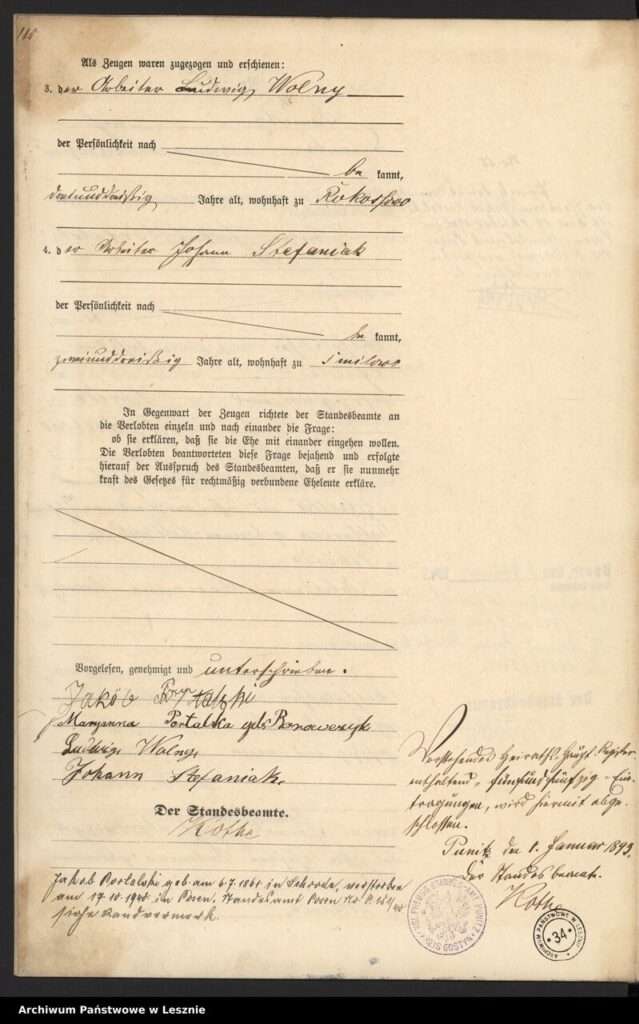 Als Zeugen waren zugezogen und erschienen:
3. der Arbeiter Ludwig Wolny
der Persönlichkeit nach
be kannt,
dreiunddreißig Jahre alt, wohnhaft zu Rokossowo
4. der Arbeiter Johann Stefaniak
der Persönlichkeit nach
be kannt,
zweiunddreißig Jahre alt, wohnhaft zu Smilowo
In Gegenwart der Zeugen richtete der Standesbeamte an
die Verlobten einzeln und nach einander die Frage:
ob sie erklären, daß sie die Ehe mit einander eingehen wollen.
Die Verlobten beantworteten diese Frage bejahend und erfolgte
hierauf der Ausspruch des Standesbeamten, daß er sie nunmehr
kraft des Gesetzes für rechtmäßig verbundene Eheleute erkläre.
Vorgelesen, genehmigt und unterschrieben.
Jakób
Maryanna Portalska geb
Ludwig Wolny
Johann Stefaniak
Der Standesbeamte.
Kothe
Jakob Portalski geb. am 6.7.1861 in verstorben
am 17.10.1945 in Posen, Standesamt Posen
siehe Randvermerk.
Vorstehendes Heirats-Haupt-Register
enthaltend fünfundfünfzig Ein-
tragungen, wird hiermit abge-
schlossen.
Punitz den 1. Januar 1893.
Der Standesbeamte.
Kothe
KREIS GOSTYN
ARCHIWUM PAŃSTWOWE W LESZNIE
34
Archiwum Państwowe w Lesznie